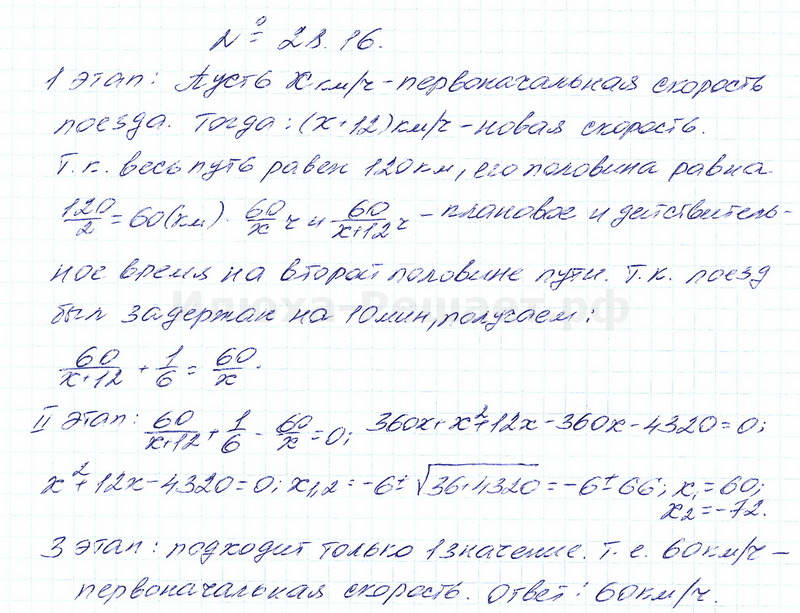 № 28.16.
1 этап: Пусть x км/ч - первоначальная скорость
поезда. Тогда: (x+12) км/ч - новая скорость.
Т.к. весь путь равен 120 км, его половина равна
120/2 = 60 (км). 60/x ч и 60/(x+12) ч - плановое и действитель-
ное время на второй половине пути. Т.к. поезд
был задержан на 10 мин, получаем:
60/(x+12) + 1/6 = 60/x.
II этап: 60/(x+12) + 1/6 - 60/x = 0; 360x + x² + 12x - 360x - 4320 = 0;
x² + 12x - 4320 = 0; x₁,₂ = -6 ± √(36+4320) = -6 ± 66; x₁ = 60;
x₂ = -72.
3 этап: подходит только 1 значение. Т.е. 60 км/ч -
первоначальная скорость. Ответ: 60 км/ч.
Илюха-Решает.рф